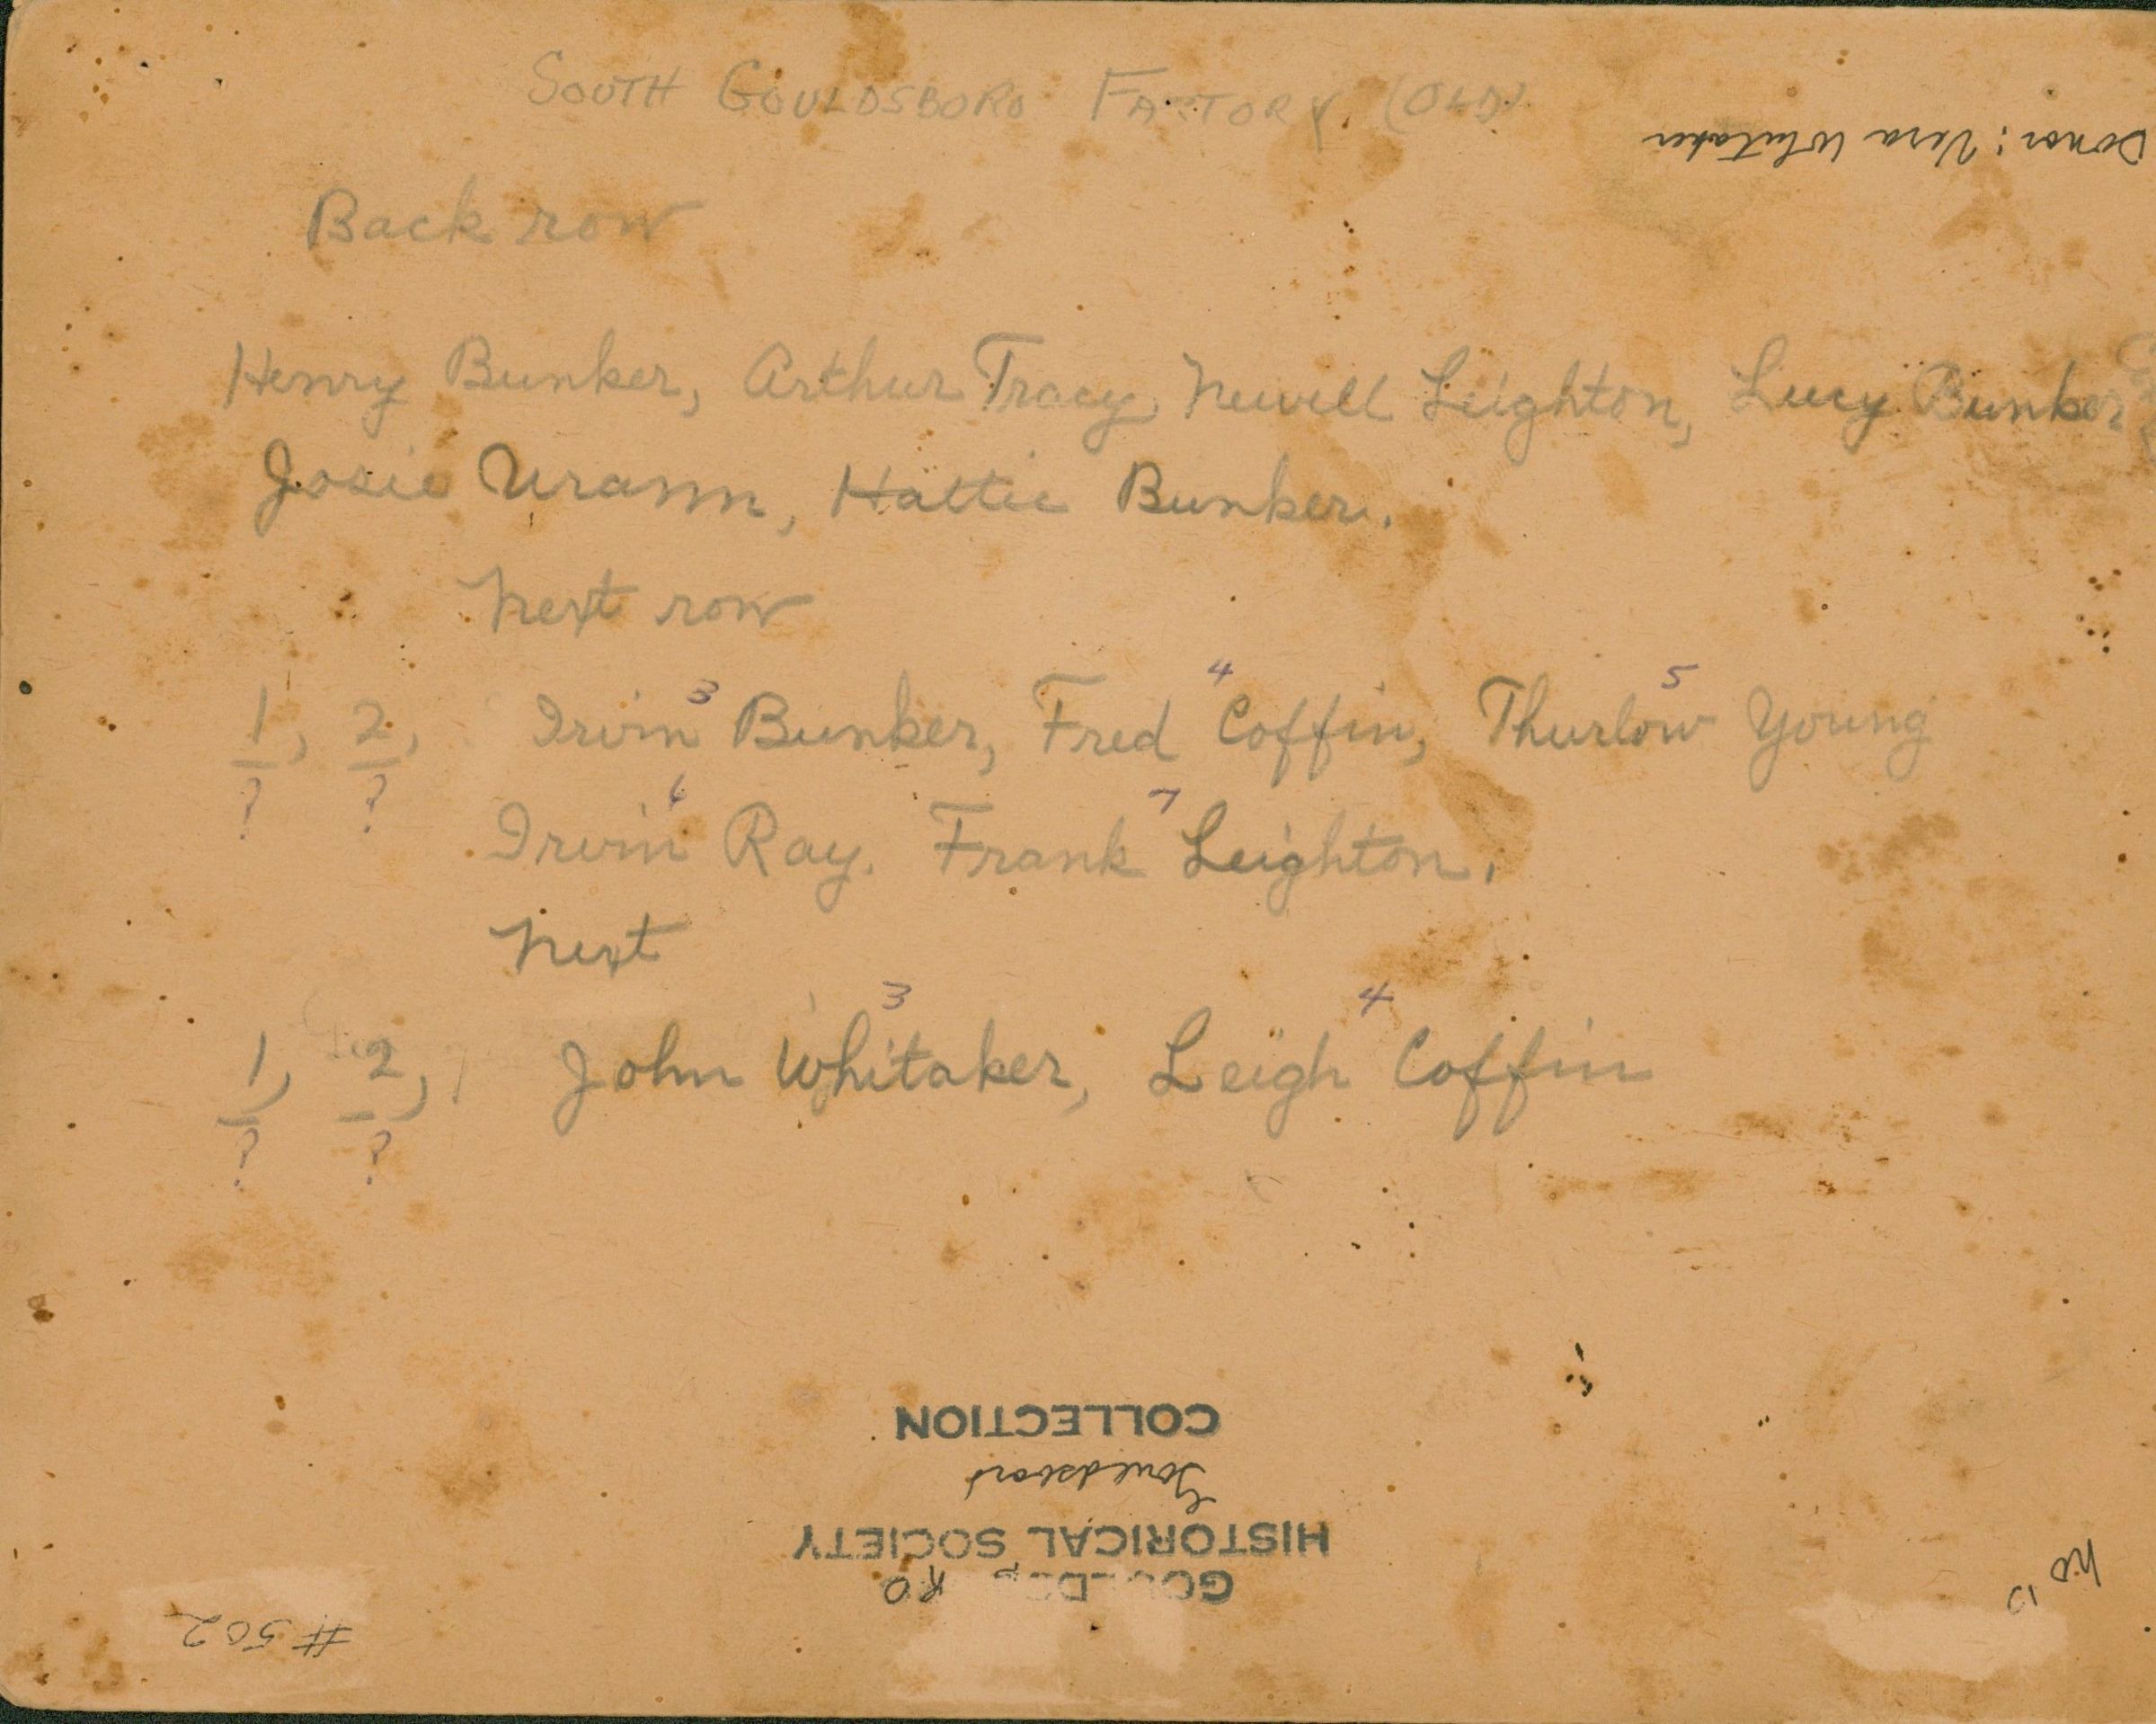 SOUTH GOULDSBORO FACTORY (OLD)
Donor: Vera Whitaker
Back row
Henry Bunker, Arthur Tracy, Newell Leighton, Lucy Bunker
Josie Urann, Hattie Bunker.
Next row
1, 2, Irvin 3 Bunker, Fred 4 Coffin, Thurlow 5 Young
? ?
Irvin 6 Ray. Frank 7 Leighton.
Next
1, 2, John 3 Whitaker, Leigh 4 Coffin
? ?
GOULDSBORO
HISTORICAL SOCIETY
Gouldsboro
COLLECTION
#502